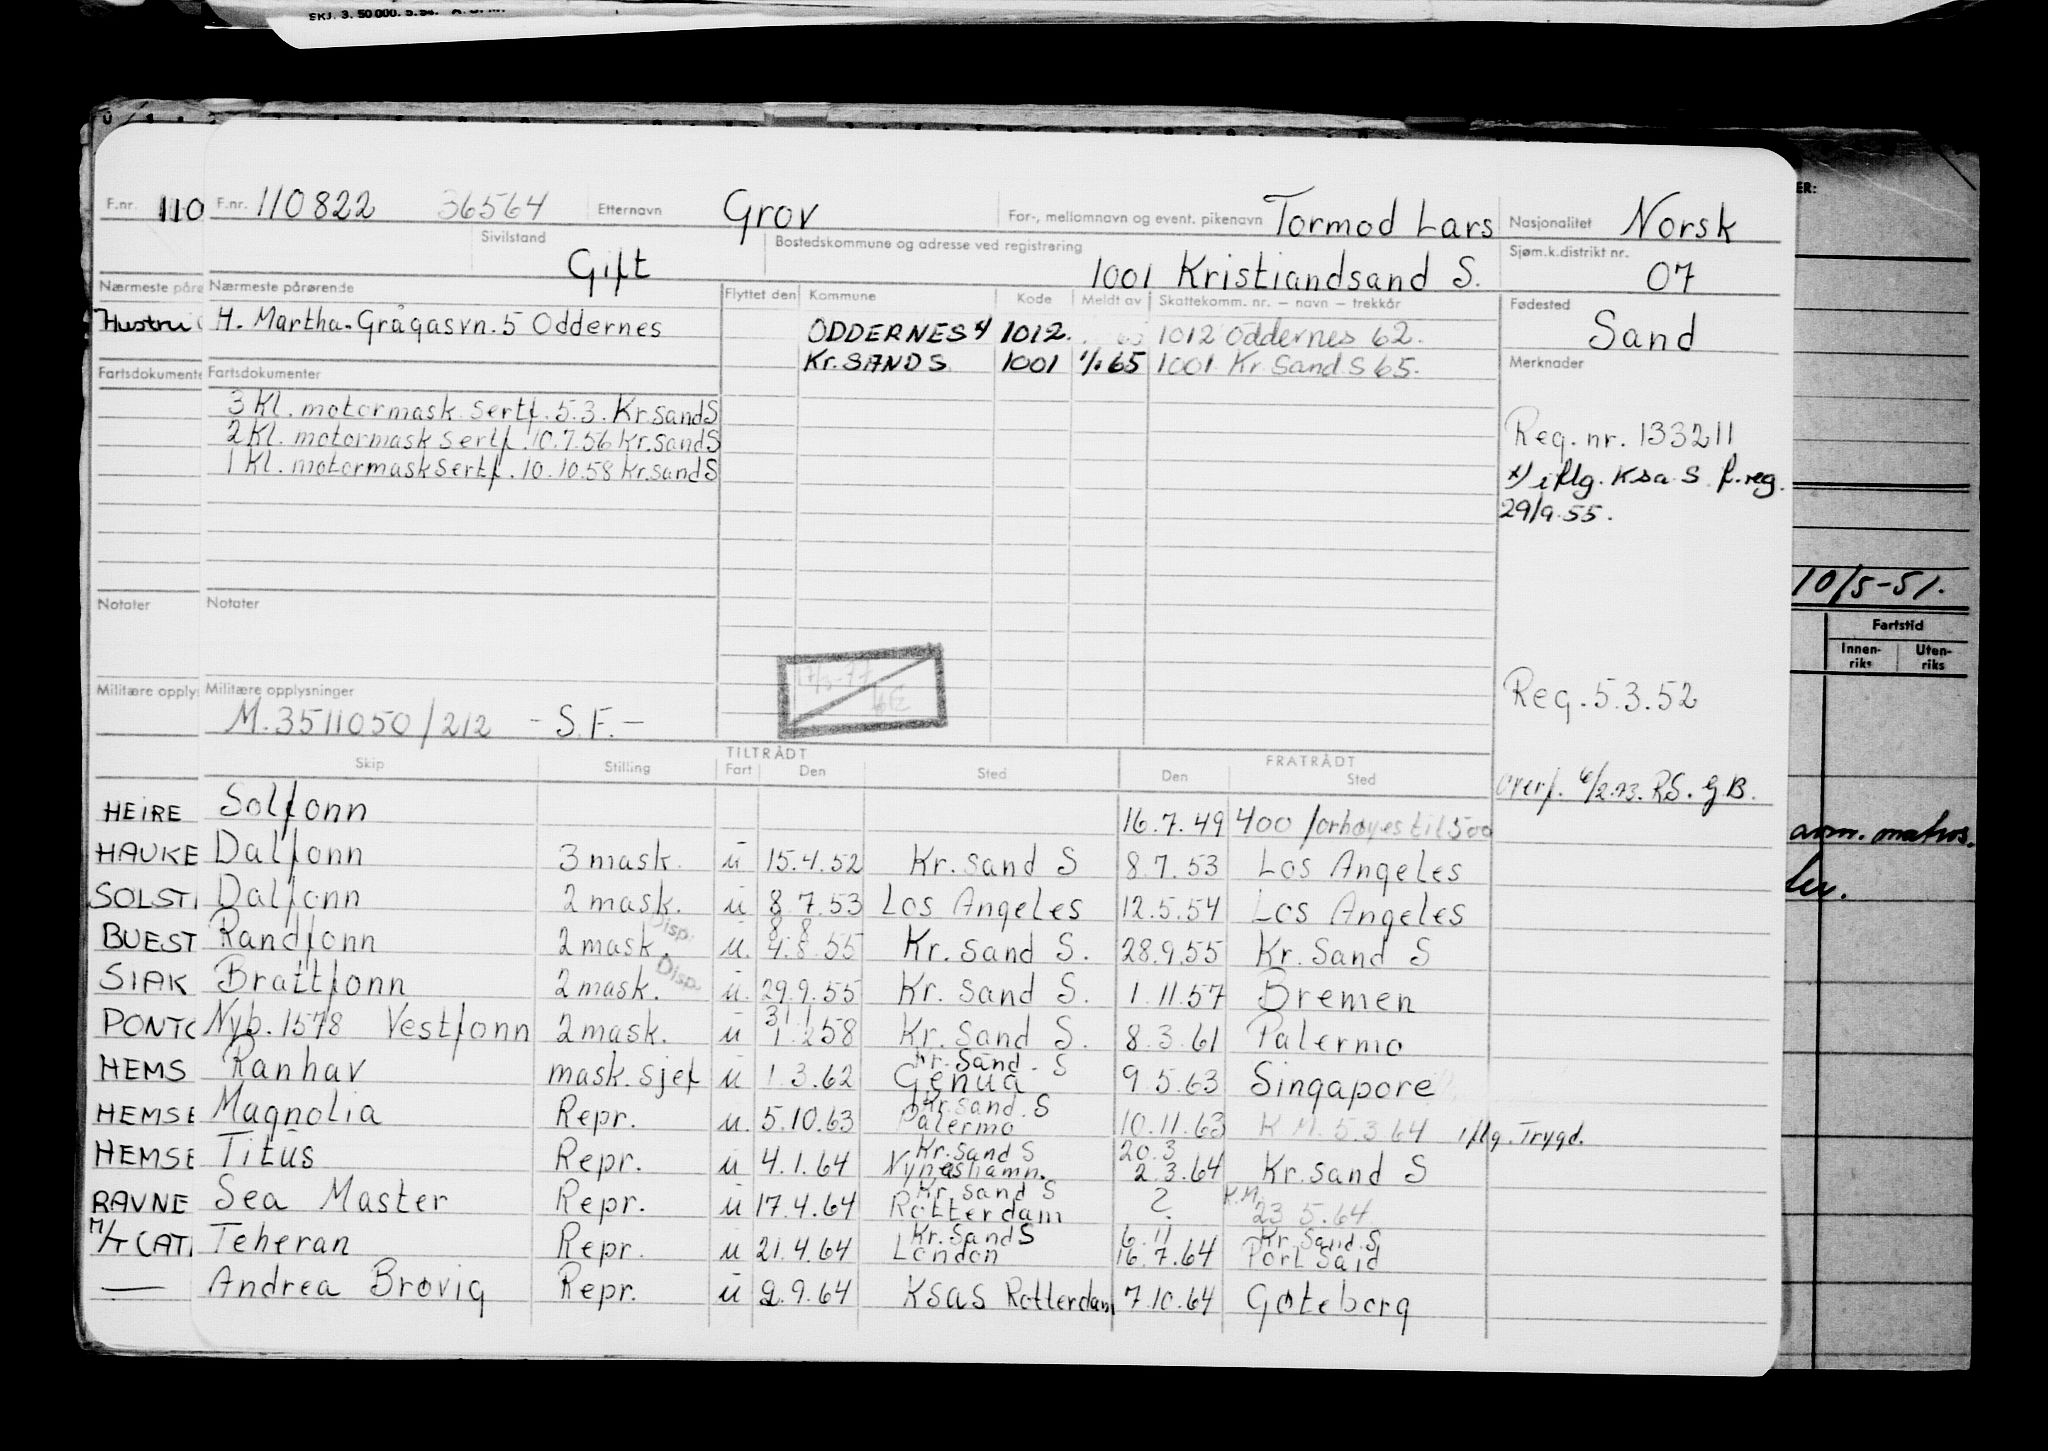 SKJ. 3. 50 000. 5.54. A. S. M.
F.nr. 110 F.nr. 110822 36564 Etternavn Grov For-, mellomnavn og event. pikenavn Tormod Lars Nasjonalitet Norsk
Sivilstand Gift Bostedskommune og adresse ved registrering 1001 Kristiandsand S. Sjøm.k.distrikt nr. 07
Nærmeste påre Nærmeste pårørende Flyttet den Kommune Kode Meldt av Skattekomm. nr. – navn – trekkår Fødested Sand
Hustru H. Martha. Grågåsvn. 5 Oddernes ODDERNES 4 1012. 1012 Oddernes 62.
Kr. SAND S. 1001 65 1001 Kr. Sand S 65.
Fartsdokumente Fartsdokumenter Merknader
3 Kl. motormask. sertf. 5.3. Kr.sand S
2 Kl. motormask sertf. 10.7.56 Kr.sand S
1 Kl. motormask sertf. 10.10.58 Kr.sand S
Reg. nr. 133211
x) iflg. Ksa. S f. reg.
29/9.55.
10/5-51.
Notater Notater
Fartstid
Innen-riks Uten-riks
Militære opply Militære opplysninger
M. 3511050/212 - S. F. -
Reg. 5.3.52
Skip Stilling TILTRÅDT Fart Den Sted FRATRÅDT Den Sted
Overf. 6/2.73. RS. G B.
HEIRE Solfonn 16.7.49 400 forhøyes til 500
HAUKE Dalfonn 3 mask. u 15.4.52 Kr. sand S 8.7.53 Los Angeles
SOLSTI Dalfonn 2 mask. u 8.7.53 Los Angeles 12.5.54 Los Angeles
BUEST Randfonn 2 mask. Disp. u. 8.8 4.8.55 Kr. sand S. 28.9.55 Kr. Sand S
SIAK Brattfonn 2 mask. Disp. u. 29.9.55 Kr. Sand S. 1.11.57 Bremen
PONTO Nyb. 1578 Vestfonn 2 mask. u 31.1 1.2.58 Kr. Sand S. 8.3.61 Palermo
HEMS Ranhav mask. sjef u 1.3.62 Kr. Sand. S Genua 9.5.63 Singapore
HEMSE Magnolia Repr. u. 5.10.63 Kr. sand. S Palermo 10.11.63 K M. 5.3.64 iflg. Trygd.
HEMSE Titus Repr. u 4.1.64 Kr. sand S Nynäshamn. 20.3 2.3.64 Kr. sand S
RAVNE Sea Master Repr. u 17.4.64 Kr. sand S Rotterdam ? K.M. 23 5.64
M/T CATI Teheran Repr. u 21.4.64 Kr. Sand S London 6.11 16.7.64 Kr. Sand. S Port Said
— Andrea Brøvig Repr. u 2.9.64 KSAS Rotterdam 7.10.64 Gøteborg